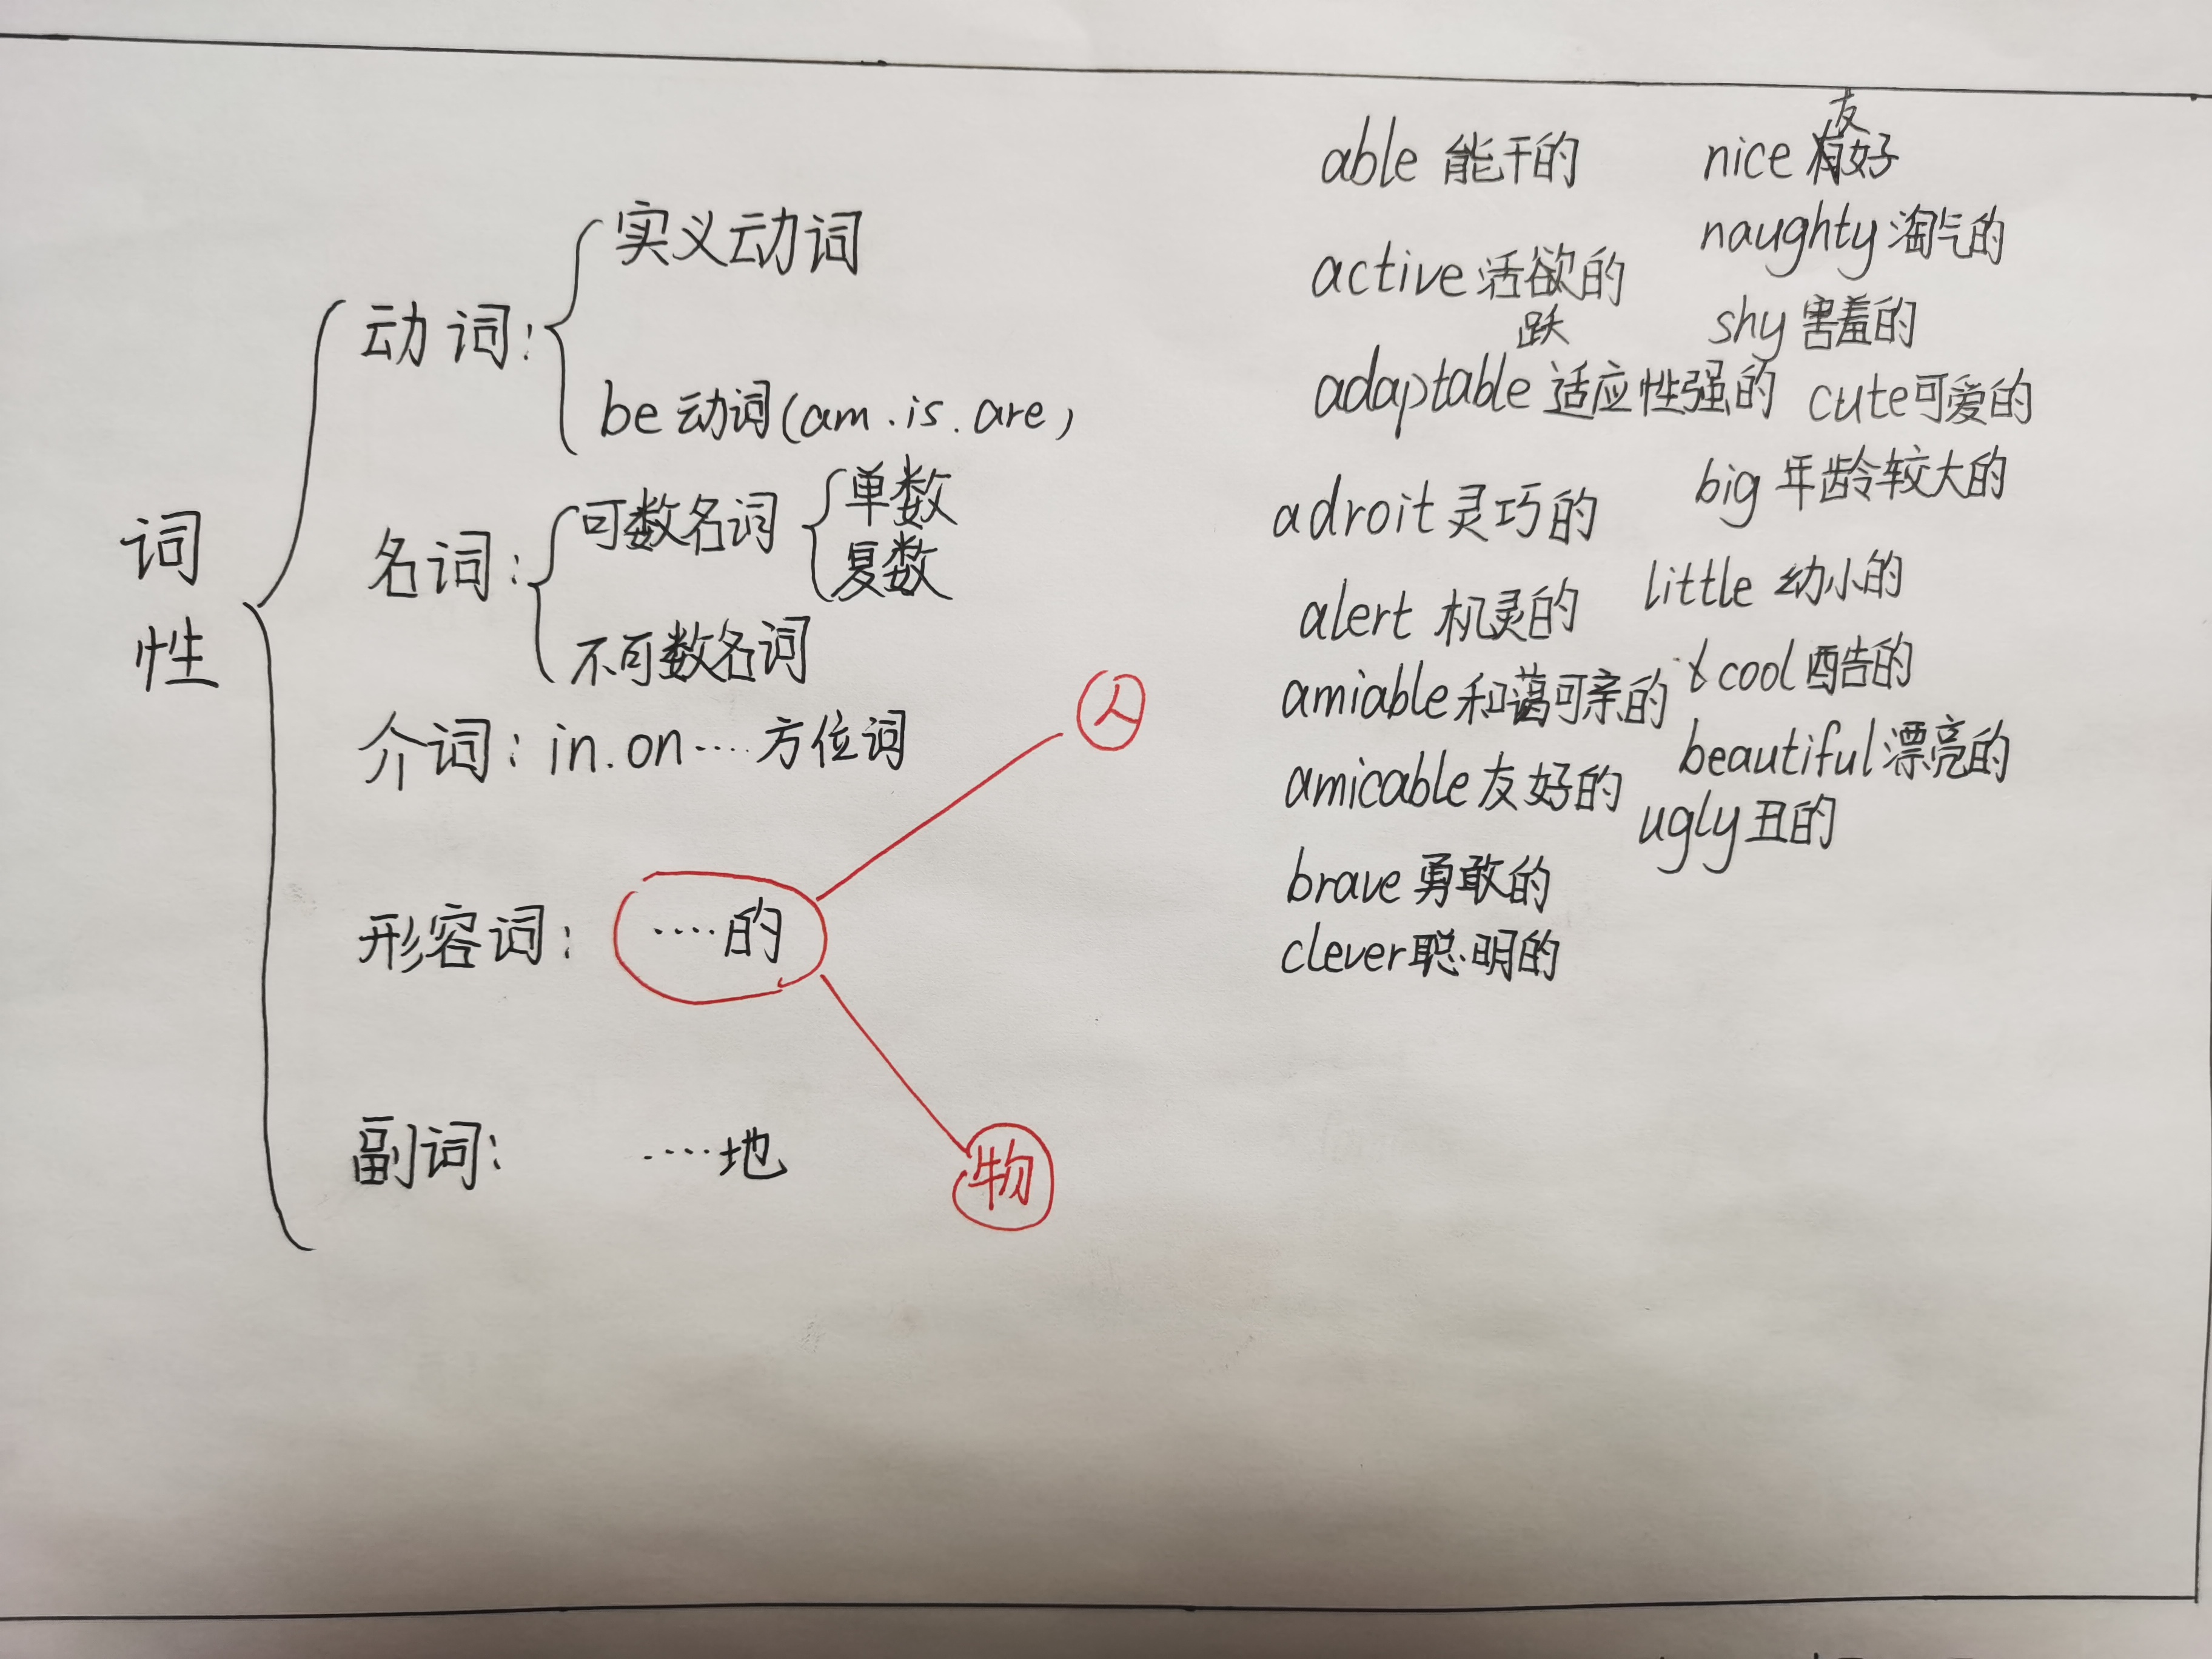 词性
动词:
实义动词
be动词(am.is.are)
名词:
可数名词
单数
复数
不可数名词
介词: in.on····方位词
形容词: ····的
人
物
副词: ····地
able 能干的
active 活欲的
跃
adaptable 适应性强的
adroit 灵巧的
alert 机灵的
amiable 和蔼可亲的
amicable 友好的
brave 勇敢的
clever 聪明的
友
nice 有好
naughty 淘气的
shy 害羞的
cute 可爱的
big 年龄较大的
little 幼小的
cool 酷的
beautiful 漂亮的
ugly 丑的